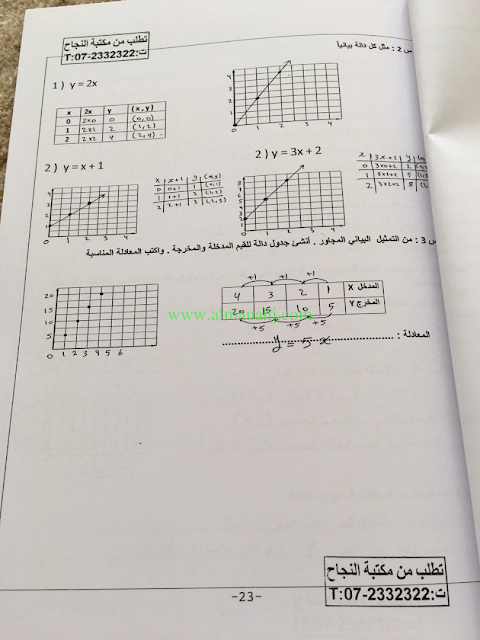 تطلب من مكتبة النجاح
ت:07-2332322:T
س 2 : مثل كل دالة بيانياً
1 ) y = 2x
x 2x y (x,y)
0 2x0 0 (0,0)
1 2x1 2 (1,2)
2 2x2 4 (2,4)
4
3
2
1
0 1 2 3 4
2 ) y = x + 1
4
3
2
1
0 1 2 3 4
x x+1 y (x,y)
0 0+1 1 (0,1)
1 1+1 2 (1,2)
2 2+1 3 (2,3)
2 ) y = 3x + 2
8
7
6
5
4
3
2
1
0 1 2 3 4
x 3x+2 y
0 3x0+2 2
1 3x1+2 5
2 3x2+2 8
س 3 : من التمثيل البياني المجاور . أنشئ جدول دالة للقيم المدخلة والمخرجة . واكتب المعادلة المناسبة
20
15
10
5
0 1 2 3 4 5 6
+1 +1 +1
4 3 2 1 المدخل X
20 15 10 5 المخرج Y
+5 +5 +5
المعادلة : y = 5x
تطلب من مكتبة النجاح
ت:07-2332322:T
-23-